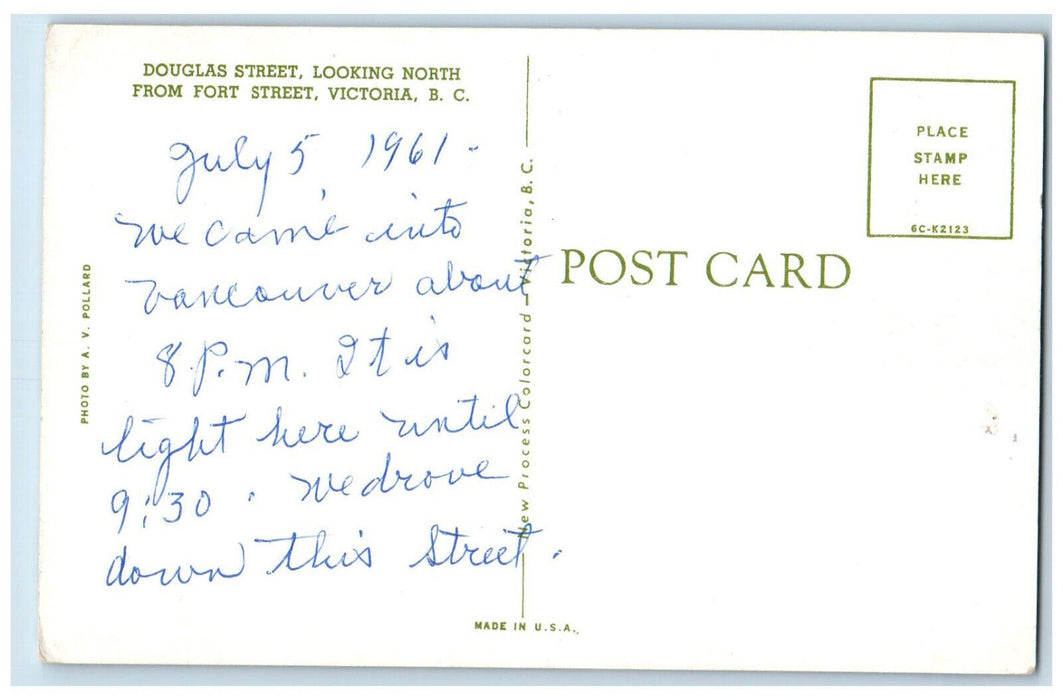 DOUGLAS STREET, LOOKING NORTH
FROM FORT STREET, VICTORIA, B. C.
July 5 1961.
We came into
Vancouver about
8 P.M. It is
light here until
9:30. We drove
down this Street.
PHOTO BY A. V. POLLARD
New Process Colorcard — Victoria, B. C.
POST CARD
PLACE
STAMP
HERE
6C-K2123
MADE IN U.S.A.